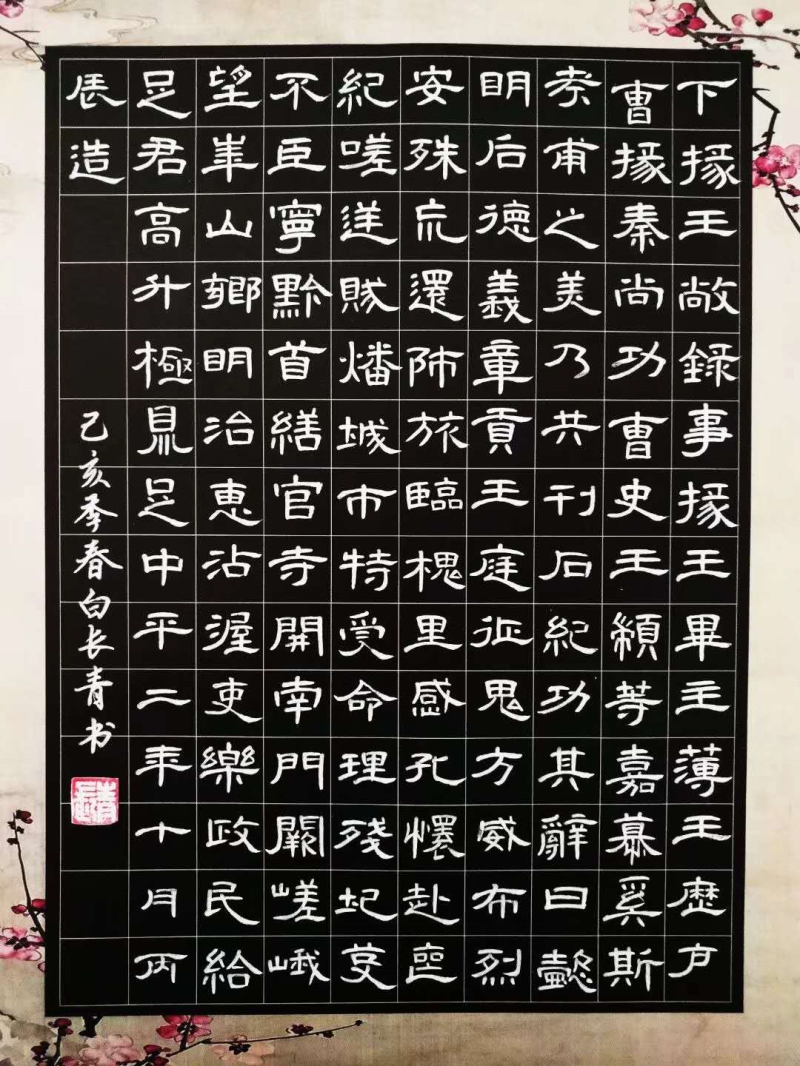 下掾王敞錄事掾王畢主薄王歷户
曹掾秦尚功曹史王顓等嘉慕奚斯
考甫之美乃共刊石紀功其辭曰懿
明后德義章貢王庭征鬼方威布烈
安殊荒還師旅臨槐里感孔懷赴喪
紀嗟逆賊燔城市特受命理殘圮芟
不臣寧黔首繕官寺開南門闕嵯峨
望崋山鄉明治惠沾渥吏樂政民給
足君高升極鼎足中平二年十月丙
辰造
己亥季春白长青书